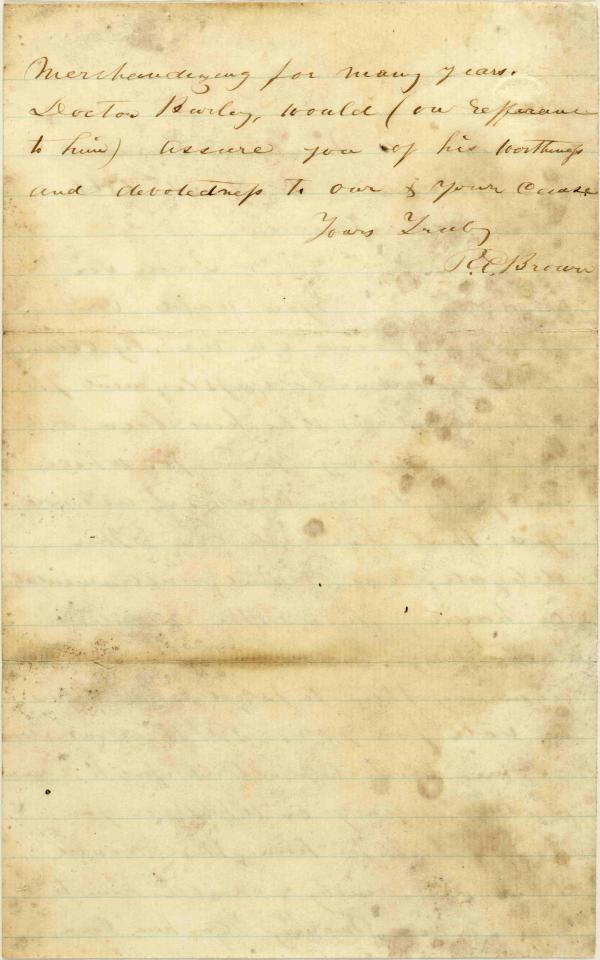 Merchandizing for many years.
Doctor Burley, would (on Refferance
to him) assure you of his worthiness
and devotedness to our & your cause
Yours Truly
R.C. Brown